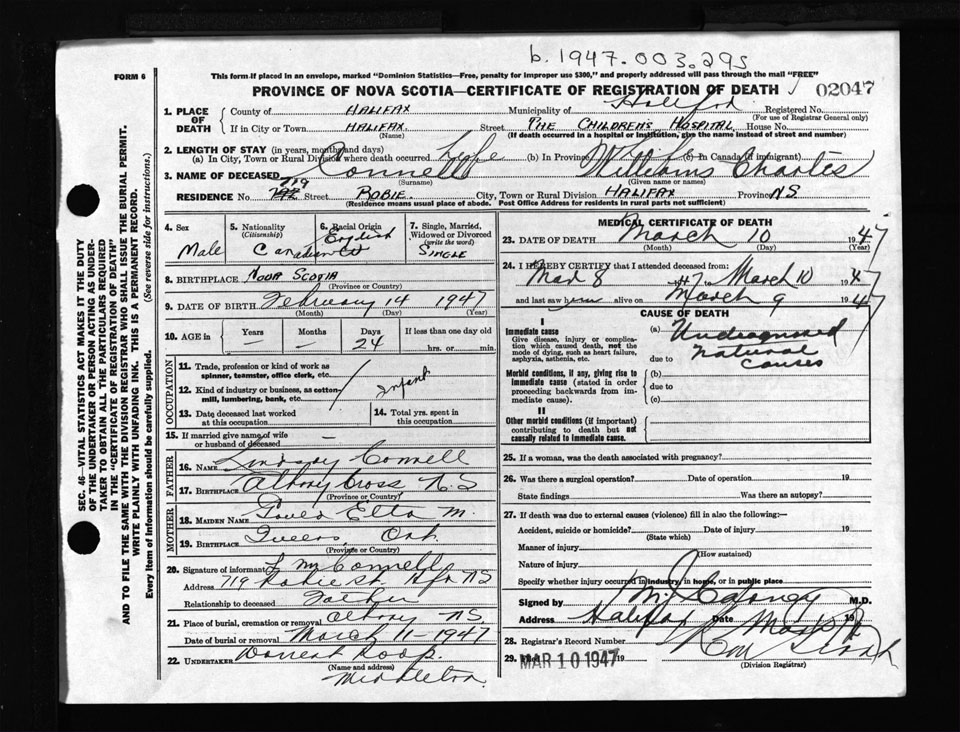 b. 1947.003.295
FORM 6
This form if placed in an envelope, marked "Dominion Statistics—Free, penalty for improper use $300," and properly addressed will pass through the mail "FREE"
PROVINCE OF NOVA SCOTIA—CERTIFICATE OF REGISTRATION OF DEATH 02047
1. PLACE OF DEATH
County of HALIFAX Municipality of Halifax Registered No.
(For use of Registrar General only)
If in City or Town HALIFAX. Street THE CHILDREN'S HOSPITAL House No.
(Name) (If death occurred in a hospital or institution, give the name instead of street and number)
2. LENGTH OF STAY (in years, months and days)
(a) In City, Town or Rural Division where death occurred Life (b) In Province (c) In Canada (if immigrant)
3. NAME OF DECEASED Connell Williams Charles
(Surname) (Given name or names)
RESIDENCE No. 719 Street ROBIE. City, Town or Rural Division HALIFAX Province N.S.
(Residence means usual place of abode. Post Office Address for residents in rural parts not sufficient)
4. Sex Male
5. Nationality (Citizenship) Canadian
6. Racial Origin English
7. Single, Married, Widowed or Divorced (write the word) SINGLE
8. BIRTHPLACE NOVA SCOTIA
(Province or Country)
9. DATE OF BIRTH February 14 1947
(Month) (Day) (Year)
10. AGE in Years Months Days If less than one day old
— — 24 hrs. or min.
OCCUPATION
11. Trade, profession or kind of work as spinner, teamster, office clerk, etc.
12. Kind of industry or business, as cotton mill, lumbering, bank, etc. Infant
13. Date deceased last worked at this occupation
14. Total yrs. spent in this occupation
15. If married give name of wife or husband of deceased —
FATHER
16. NAME Lindsay Connell
17. BIRTHPLACE Albany Cross N.S
(Province or Country)
MOTHER
18. MAIDEN NAME Etta M.
19. BIRTHPLACE Queens,
(Province or Country)
20. Signature of informant L M Connell
Address 719 Robie St. Hfx NS
Relationship to deceased Father
21. Place of burial, cremation or removal Albany NS
Date of burial or removal March 11-1947
22. UNDERTAKER Warren Roop.
(Name and address)
Middleton.
MEDICAL CERTIFICATE OF DEATH
23. DATE OF DEATH March 10 1947
(Month) (Day) (Year)
24. I HEREBY CERTIFY that I attended deceased from:
Mar 8 1947 to March 10 1947
and last saw him alive on March 9 1947
CAUSE OF DEATH
I
Immediate cause
Give disease, injury or complication which caused death, not the mode of dying, such as heart failure, asphyxia, asthenia, etc.
(a) Undiagnosed
natural
causes
due to
Morbid conditions, if any, giving rise to immediate cause (stated in order proceeding backwards from immediate cause).
(b)
due to
(c)
II
Other morbid conditions (if important) contributing to death but not causally related to immediate cause.
25. If a woman, was the death associated with pregnancy?
26. Was there a surgical operation? Date of operation 19
State findings Was there an autopsy?
27. If death was due to external causes (violence) fill in also the following:—
Accident, suicide or homicide? Date of injury 19
(State which)
Manner of injury
(How sustained)
Nature of injury
Specify whether injury occurred in industry, in home, or in public place
Signed by M.D.
Address Halifax Date Mar
28. Registrar's Record Number
29. MAR 10 1947 19
(Division Registrar)
SEC. 46—VITAL STATISTICS ACT MAKES IT THE DUTY
OF THE UNDERTAKER OR PERSON ACTING AS UNDER-
TAKER TO OBTAIN ALL THE PARTICULARS REQUIRED
IN THE "CERTIFICATE OF REGISTRATION OF DEATH"
AND TO FILE THE SAME WITH THE DIVISION REGISTRAR WHO SHALL ISSUE THE BURIAL PERMIT.
WRITE PLAINLY WITH UNFADING INK. THIS IS A PERMANENT RECORD.
Every item of information should be carefully supplied. (See reverse side for instructions.)